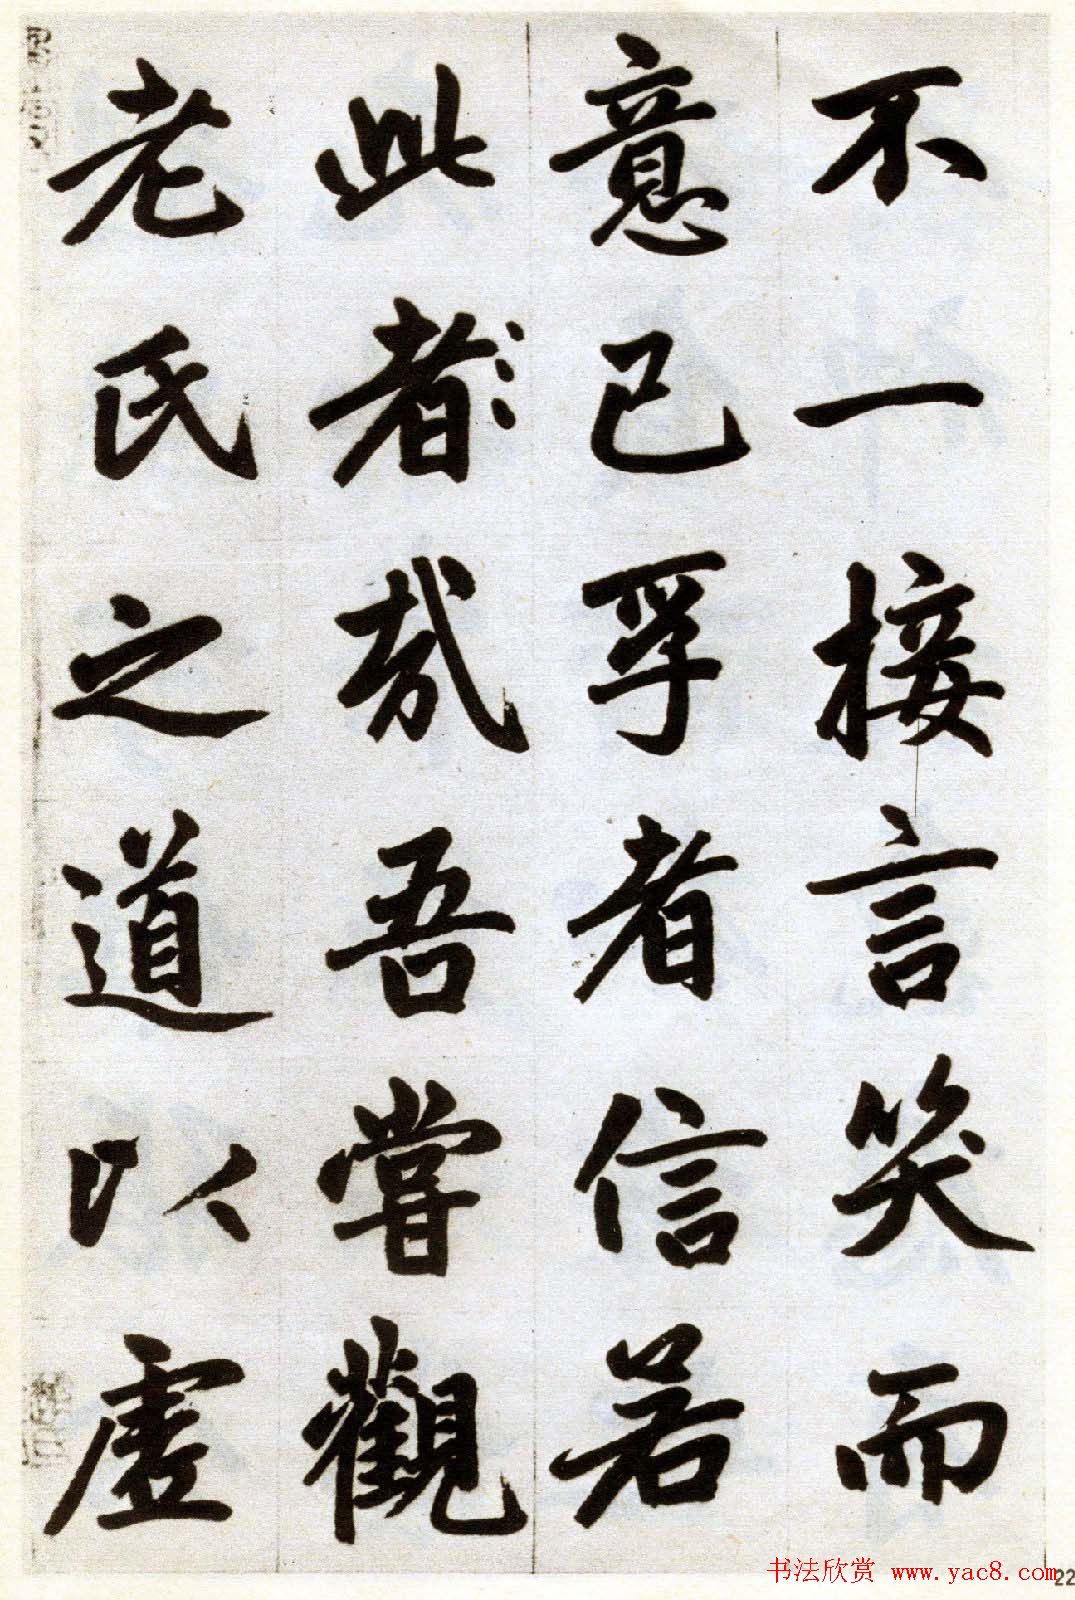 不一接言笑而
意已孚者信若
此者哉吾嘗觀
老氏之道以虛
书法欣赏 www.yac8.com
22